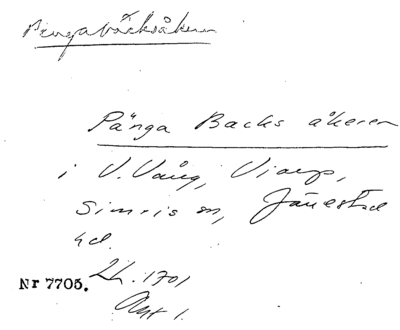 Pengabacksåkern
Pänga Backs åkeren
i V. Vång, Viarp,
Simris sn, Järrestad
hd.
LL. 1701
Nr 7705.
Akt 1.